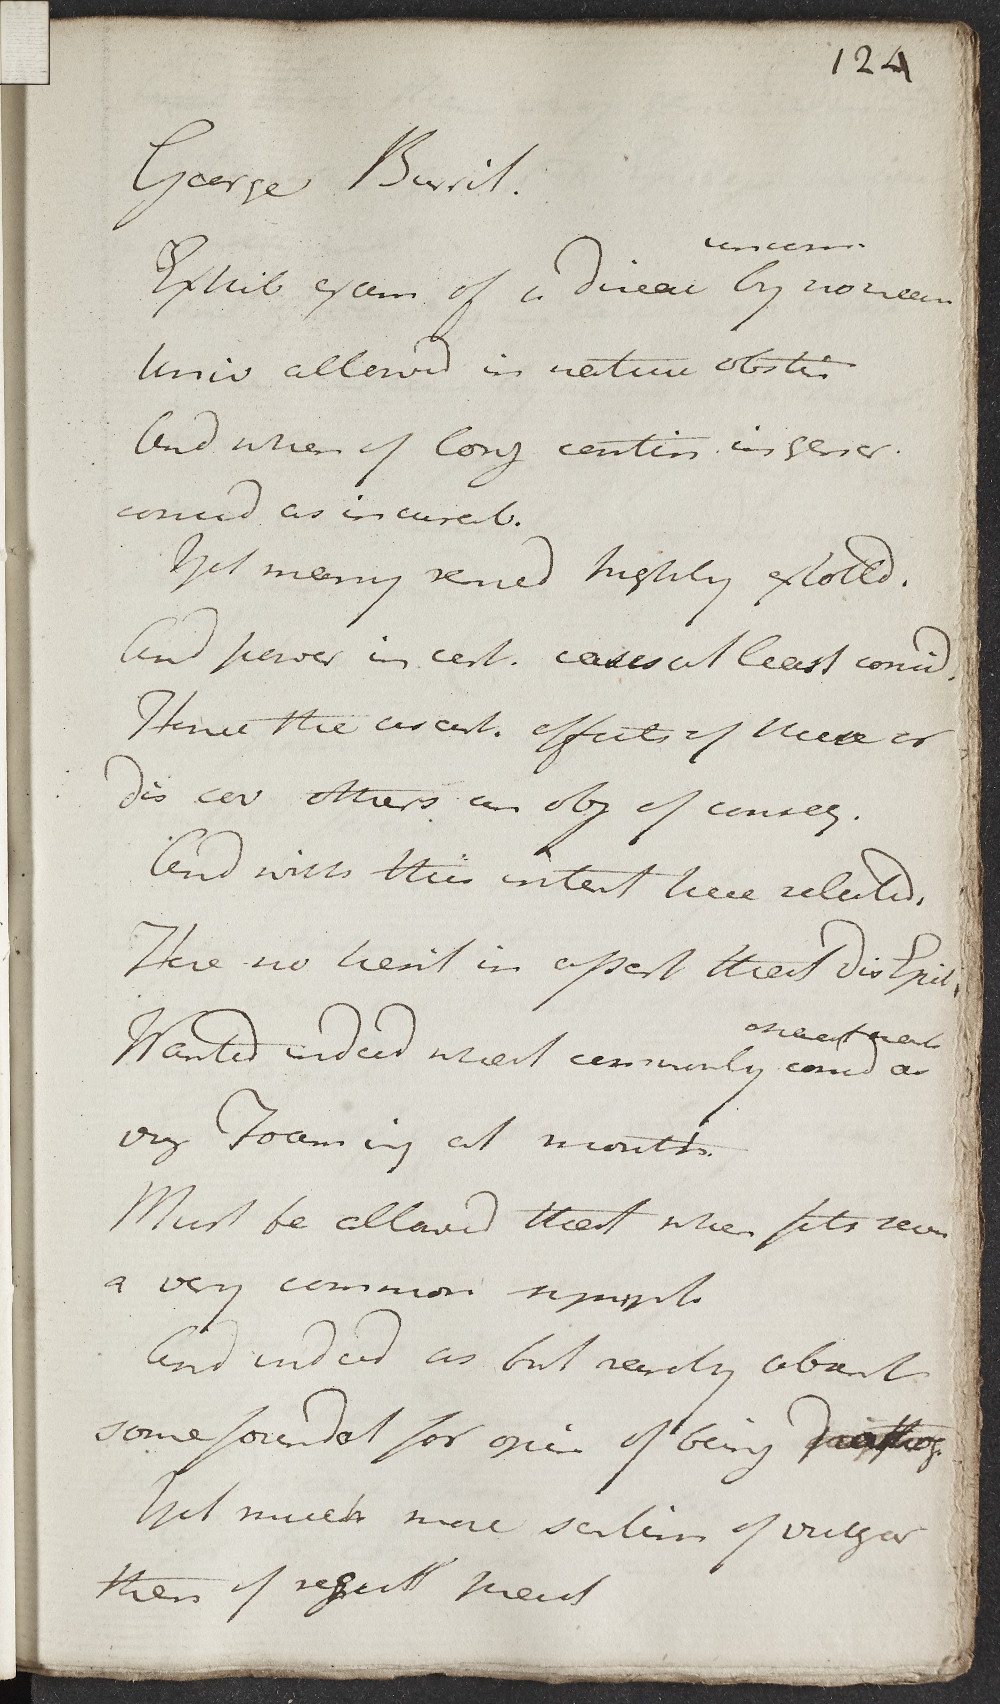 124
George Burril.
uncom.
Exhib exam of a disease by no mean
Univ allowed in nature obstin
And when of long contin. in gener.
consid as incurab.
Yet many remed highly extolld.
And power in cert. cases at least consid.
Hence the ascert. effects of these or
discov others an obj of conseq.
And with this intent here selected.
Here no hesit in assert that dis Epil.
Wanted indeed what commonly consid as
viz Foaming at mouth.
Must be allowed that when fits recur
a very common sympt.
And indeed as but rarely absent
some foundat for opin of being
Yet much more criterion of vulgar
then of regular pract